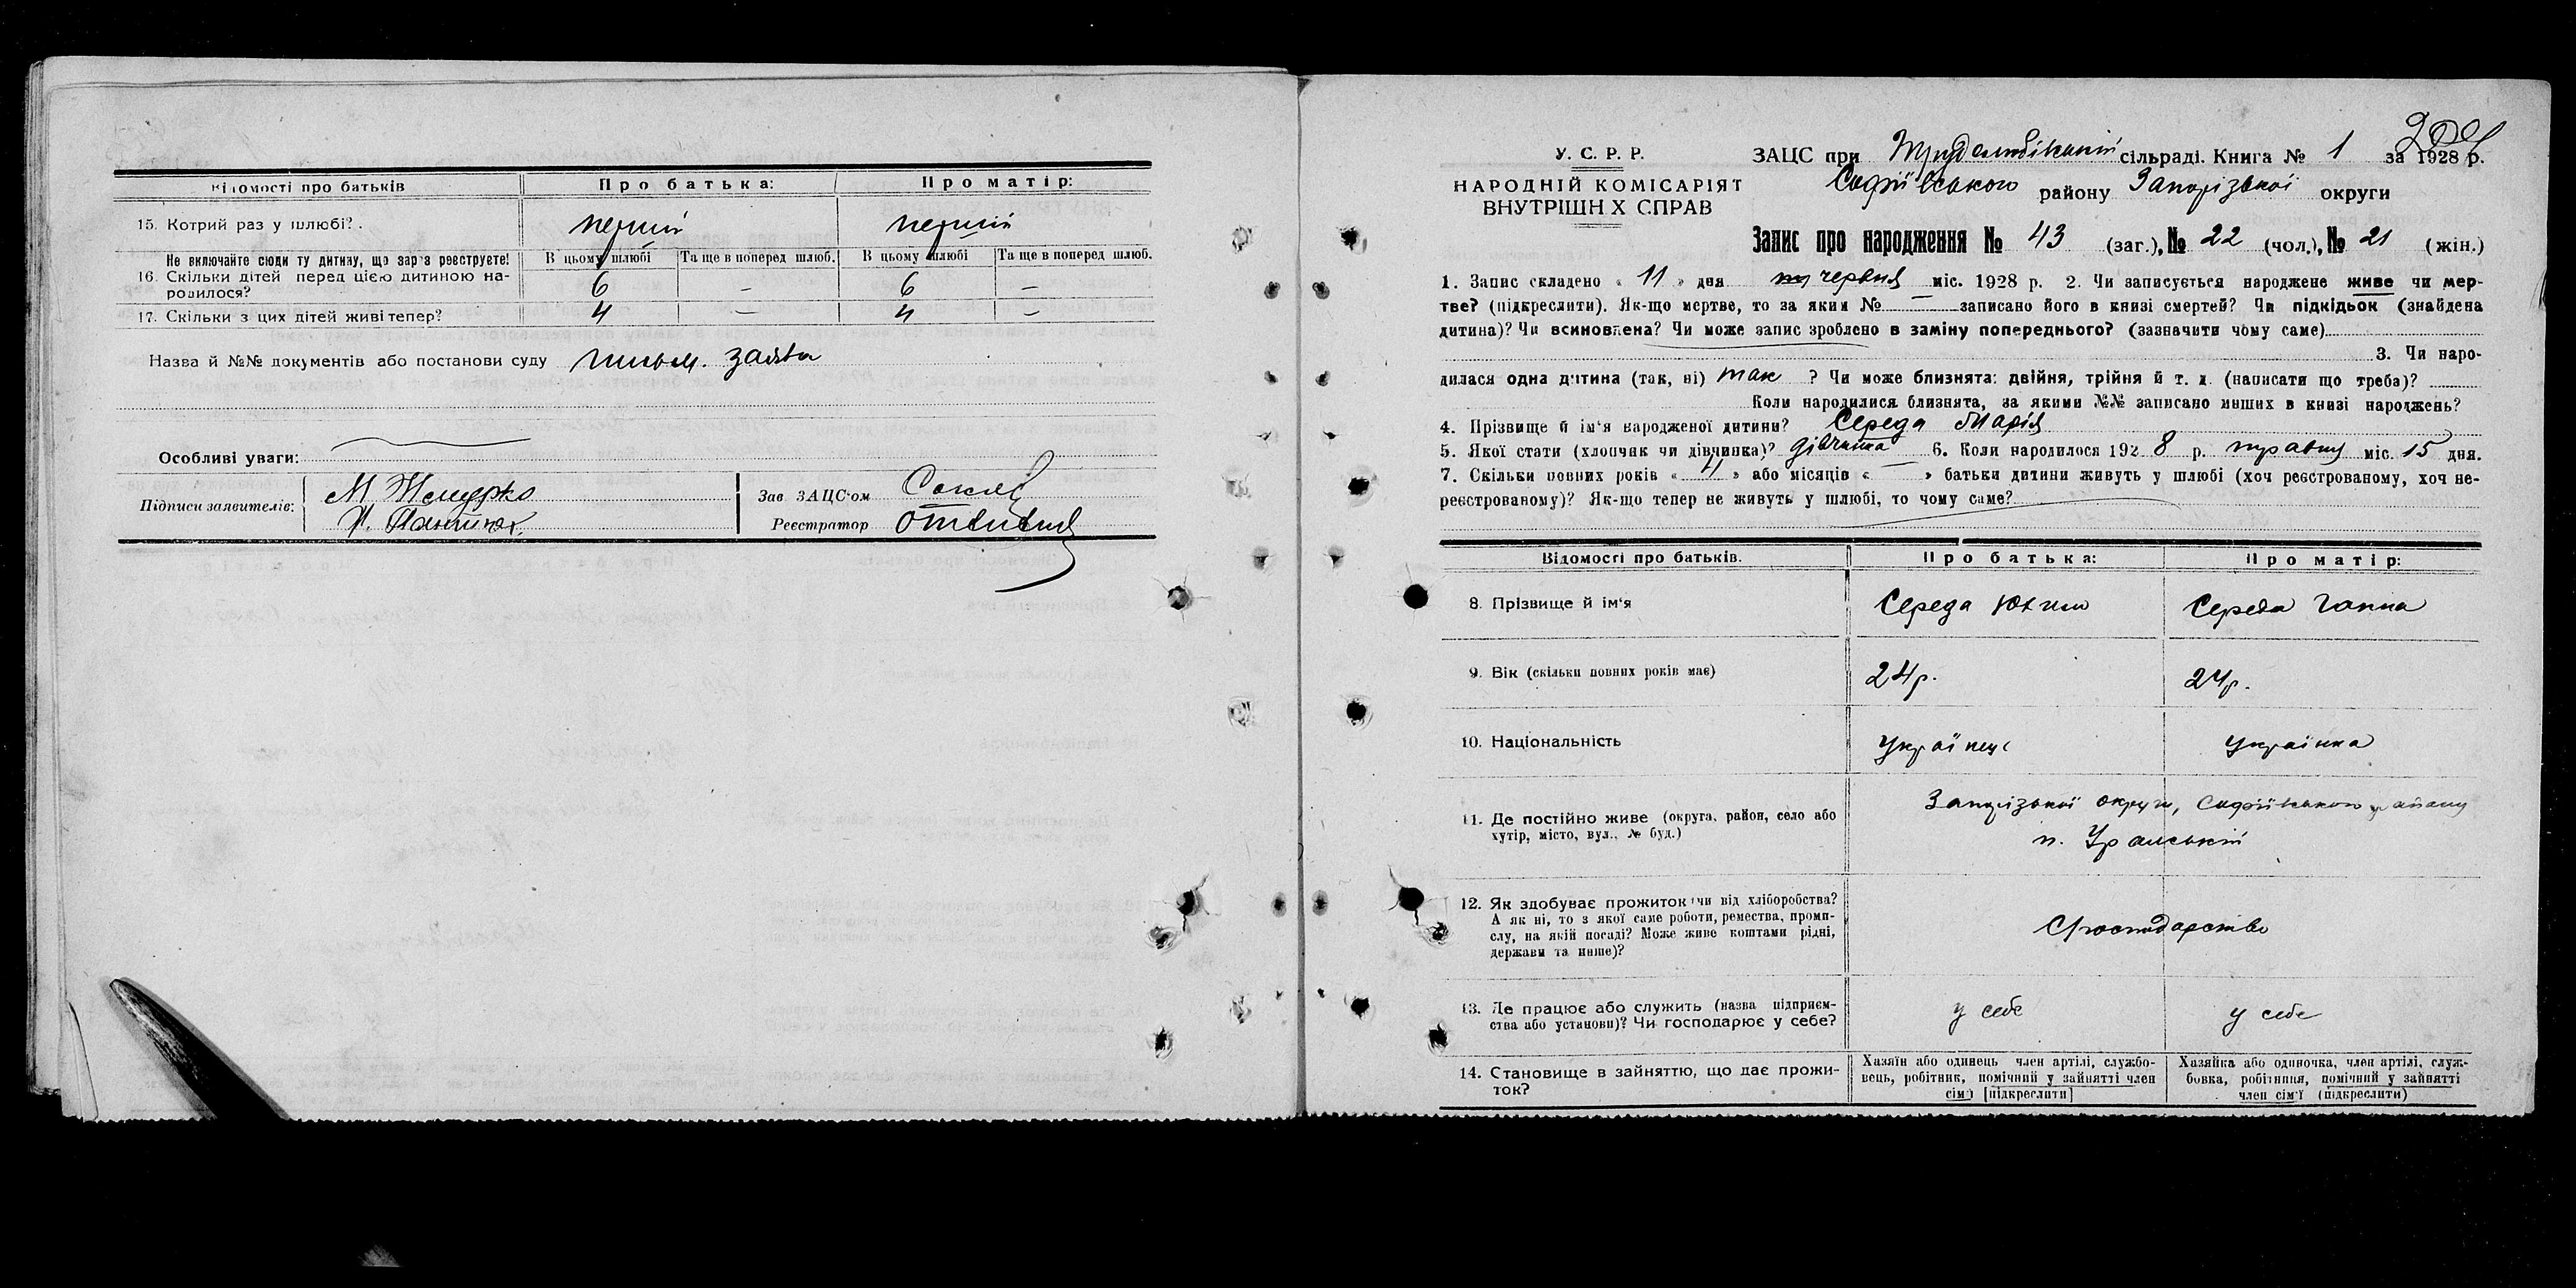 Відомості про батьків
Про батька:
Про матір:
15. Котрий раз у шлюбі?.
перший
перший
Не включайте сюди ту дитину, що зараз реєструєте!
16. Скільки дітей перед цією дитиною на-
родилося?
В цьому шлюбі
Та ще в поперед шлюб.
В цьому шлюбі
Та ще в поперед шлюб.
6 — 6 —
17. Скільки з цих дітей живі тепер?
4 — 4 —
Назва й №№ документів або постанови суду письм. заява
Особливі уваги:
Підписи заявителів:
Зав ЗАЦС'ом
Реєстратор
У. С. Р. Р.
НАРОДНІЙ КОМІСАРІЯТ
ВНУТРІШН Х СПРАВ
ЗАЦС при сільраді. Книга № 1 за 1928 р.
Софіївського району Запорізької округи
Запис про народження № 43 (заг.), № 22 (чол.), № 21 (жін.)
1. Запис складено « 11 » дня червня міс. 1928 р. 2. Чи записується народжене живе чи мер-
тве? (підкреслити). Як-що мертве, то за яким № — записано його в книзі смертей? Чи підкідьок (знайдена
дитина)? Чи всиновлена? Чи може запис зроблено в заміну попереднього? (зазначити чому саме)
3. Чи наро-
дилася одна дитина (так, ні) так ? Чи може близнята: двійня, трійня й т. д. (написати що треба)?
Коли народилися близнята, за якими №№ записано инших в книзі народжень?
4. Прізвище й ім'я народженої дитини? Середа Марія
5. Якої стати (хлопчик чи дівчинка)? дівчина 6. Коли народилося 1928 р. травня міс. 15 дня.
7. Скільки повних років « 4 » або місяців « — » батьки дитини живуть у шлюбі (хоч реєстрованому, хоч не-
реєстрованому)? Як-що тепер не живуть у шлюбі, то чому саме?
Відомості про батьків.
Про батька:
Про матір:
8. Прізвище й ім'я
Середа Юхим
Середа Ганна
9. Вік (скільки повних років має)
24 р.
24 р.
10. Національність
українець
українка
11. Де постійно живе (округа, район, село або
хутір, місто, вул., № буд.)
Запорізької округи, Софіївського району
12. Як здобуває прожиток (чи від хліборобства?
А як ні, то з якої саме роботи, ремества, промп-
слу, на якій посаді? Може живе коштами рідні,
держави та инше)?
С/господарство
13. Де працює або служить (назва підприєм-
ства або установи)? Чи господарює у себе?
у себе
у себе
14. Становище в зайняттю, що дає прожи-
ток?
Хазяїн або одинець член артілі, службо-
вець, робітник, помічний у зайнятті член
сім'ї [підкреслити]
Хазяйка або одиночка, член артілі, служ-
бовка, робітниця, помічний у зайнятті
член сім'ї (підкреслити)